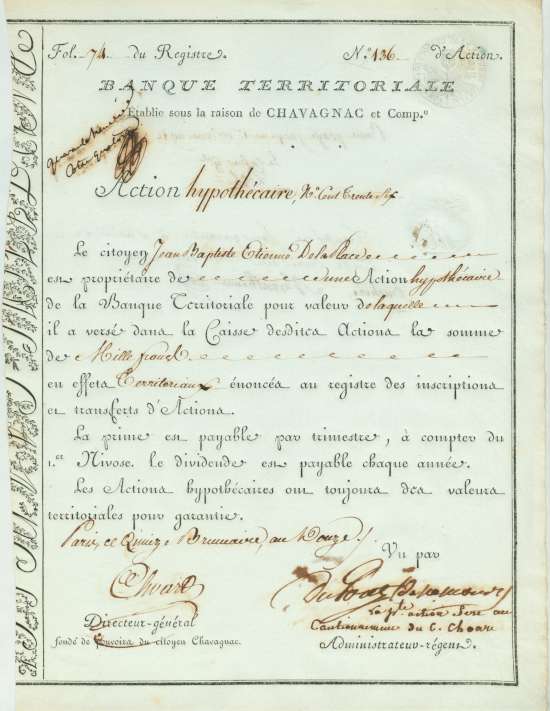 Fol. 74 du Registre.
N.° 136 d'Action.
BANQUE TERRITORIALE
Établie sous la raison de CHAVAGNAC et Comp.e
Action hypothécaire, N.° Cent Trente Six
Le citoyen Jean Baptiste Etienne Delaplace
est propriétaire de une Action hypothécaire
de la Banque Territoriale pour valeur de laquelle
il a versé dans la Caisse desdites Actions la somme
de Mille francs
en effets Territoriaux énoncés au registre des inscriptions
et transferts d'Actions.
La prime est payable par trimestre, à compter du
1.er Nivose. le dividende est payable chaque année.
Les Actions hypothécaires ont toujours des valeurs
territoriales pour garantie.
Paris, ce Quinze Brumaire, an Douze
Vu par
Choart
Directeur-général
fondé de pouvoirs du citoyen Chavagnac.
La p.te action sert au
Cautionnement du C. Choart
Administrateur-régent.